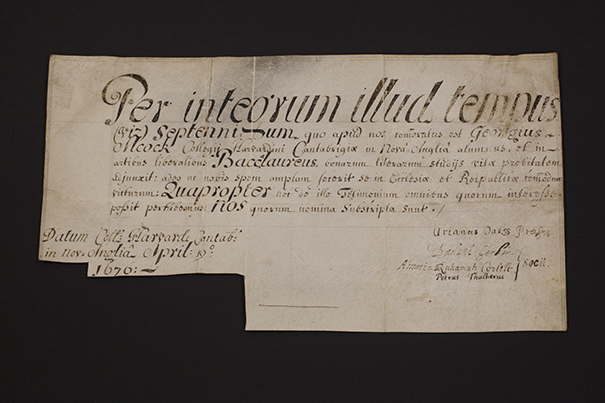 Per integrum illud tempus
(viz) Septennium quo apud nos comoratus est Georgius
Alcock Collegii Harvardini Cantabrigiæ in Nova Anglia alumnus, et in
artibus liberalibus Baccalaureus, bonarum literarum studijs vitæ probitatem
adjunxit: adeo ut nobis spem amplam fecerit se in Ecclesiæ et Reipublicæ comodum
victurum: Quapropter hoc de illo Testimonium omnibus quorum interesse
possit perhibemus nos quorum nomina subscripta sunt /
Urianus Oakes Præses
Datum Coll: Harvard: Cantab:
in nov: Anglia April: 9º
1676:
Daniel
Ammi Ruhamah Corlett
Petrus Thacherus
Socii